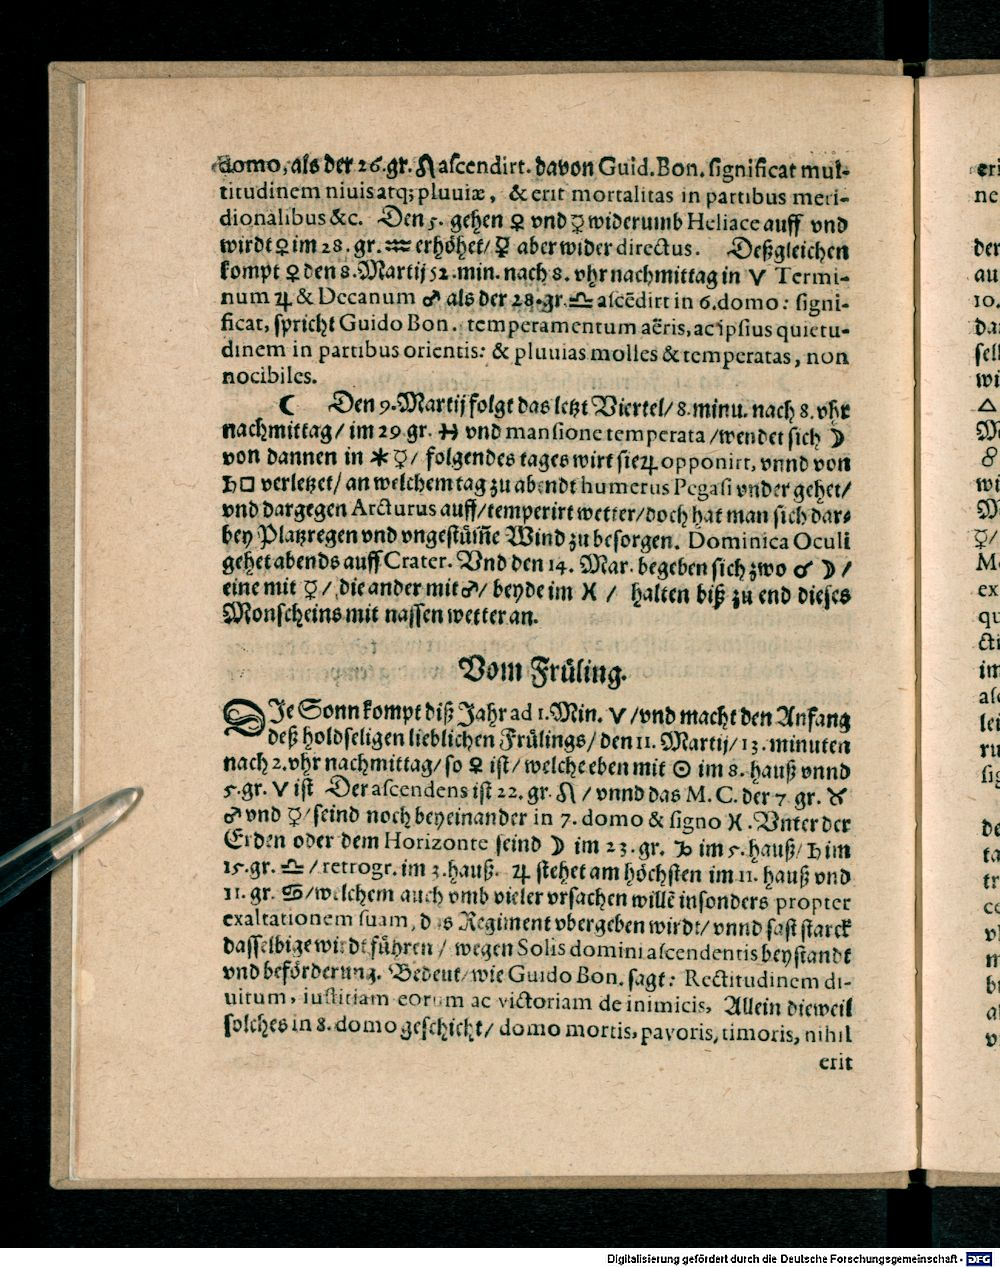 domo, als der 26. gr. ♌ ascendirt. davon Guid. Bon. significat mul-
titudinem niuis atq; pluuiæ, & erit mortalitas in partibus meri-
dionalibus &c. Den 5. gehen ♀ vnd ☿ widerumb Heliace auff vnd
wirdt ♀ im 28. gr. ♒ erhöhet/ ☿ aber wider directus. Deßgleichen
kompt ♀ den 8. Martij 52. min. nach 8. vhr nachmittag in ♈ Termi-
num ♃ & Decanum ♂ als der 28. gr. ♎ ascēdirt in 6. domo: signi-
ficat, spricht Guido Bon. temperamentum aëris, ac ipsius quietu-
dinem in partibus orientis: & pluuias molles & temperatas, non
nocibiles.
☾ Den 9. Martij folgt das letzt Viertel/ 8. minu. nach 8. vhr
nachmittag/ im 29 gr. ♓ vnd mansione temperata/ wendet sich ☽
von dannen in ✶ ☿/ folgendes tages wirt sie ♃ opponirt, vnnd von
♄ □ verletzet/ an welchem tag zu abendt humerus Pegasi vnder gehet/
vnd dargegen Arcturus auff/ temperirt wetter/ doch hat man sich dar-
bey Platzregen vnd vngestüm̃e Wind zu besorgen. Dominica Oculi
gehet abends auff Crater. Vnd den 14. Mar. begeben sich zwo ☌ ☽/
eine mit ☿/ die ander mit ♂/ beyde im ♓/ halten biß zu end dieses
Monscheins mit nassen wetter an.
Vom Früling.
DIe Sonn kompt diß Jahr ad 1. Min. ♈/ vnd macht den Anfang
deß holdseligen lieblichen Frülings/ den 11. Martij/ 13. minuten
nach 2. vhr nachmittag/ so ♀ ist/ welche eben mit ☉ im 8. hauß vnnd
5. gr. ♈ ist Der ascendens ist 22. gr. ♌/ vnnd das M. C. der 7 gr. ♉
♂ vnd ☿/ seind noch beyeinander in 7. domo & signo ♓. Vnter der
Erden oder dem Horizonte seind ☽ im 23. gr. ♑ im 5. hauß/ ♄ im
15. gr. ♎/ retrogr. im 3. hauß. ♃ stehet am höchsten im 11. hauß vnd
11. gr. ♋/ welchem auch vmb vieler vrsachen willē insonders propter
exaltationem suam, das Regiment vbergeben wirdt/ vnnd fast starck
dasselbige wirdt führen/ wegen Solis domini ascendentis beystandt
vnd beförderung. Bedeut/ wie Guido Bon. sagt: Rectitudinem di-
uitum, iustitiam eorum ac victoriam de inimicis, Allein dieweil
solches in 8. domo geschicht/ domo mortis, pavoris, timoris, nihil
erit
Digitalisierung gefördert durch die Deutsche Forschungsgemeinschaft - DFG